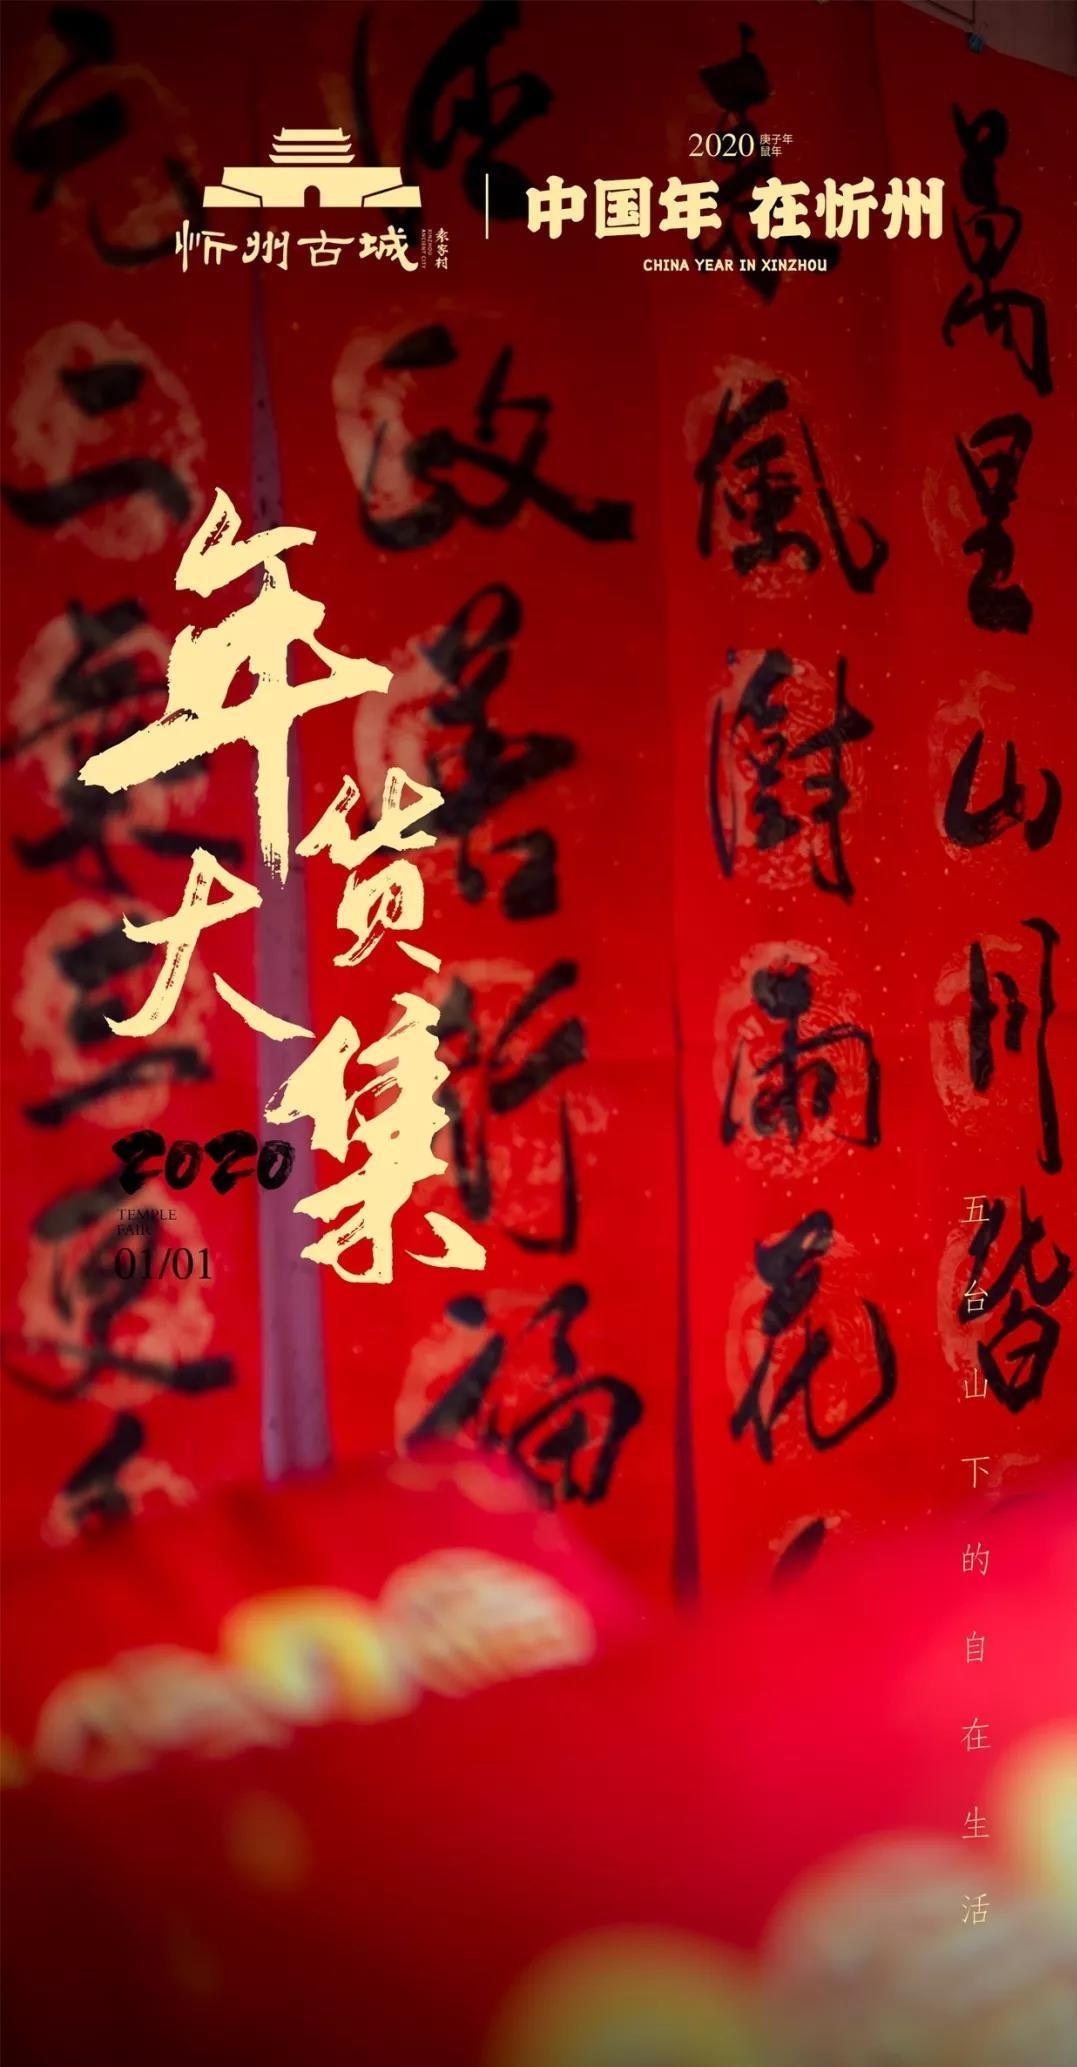 忻州古城
袁家村
XINZHOU
ANCIENT CITY
2020
庚子年
鼠年
中国年 在忻州
CHINA YEAR IN XINZHOU
年货
大集
2020
TEMPLE
FAIR
01/01
五台山下的自在生活
風調雨
政善行福
二
三
山